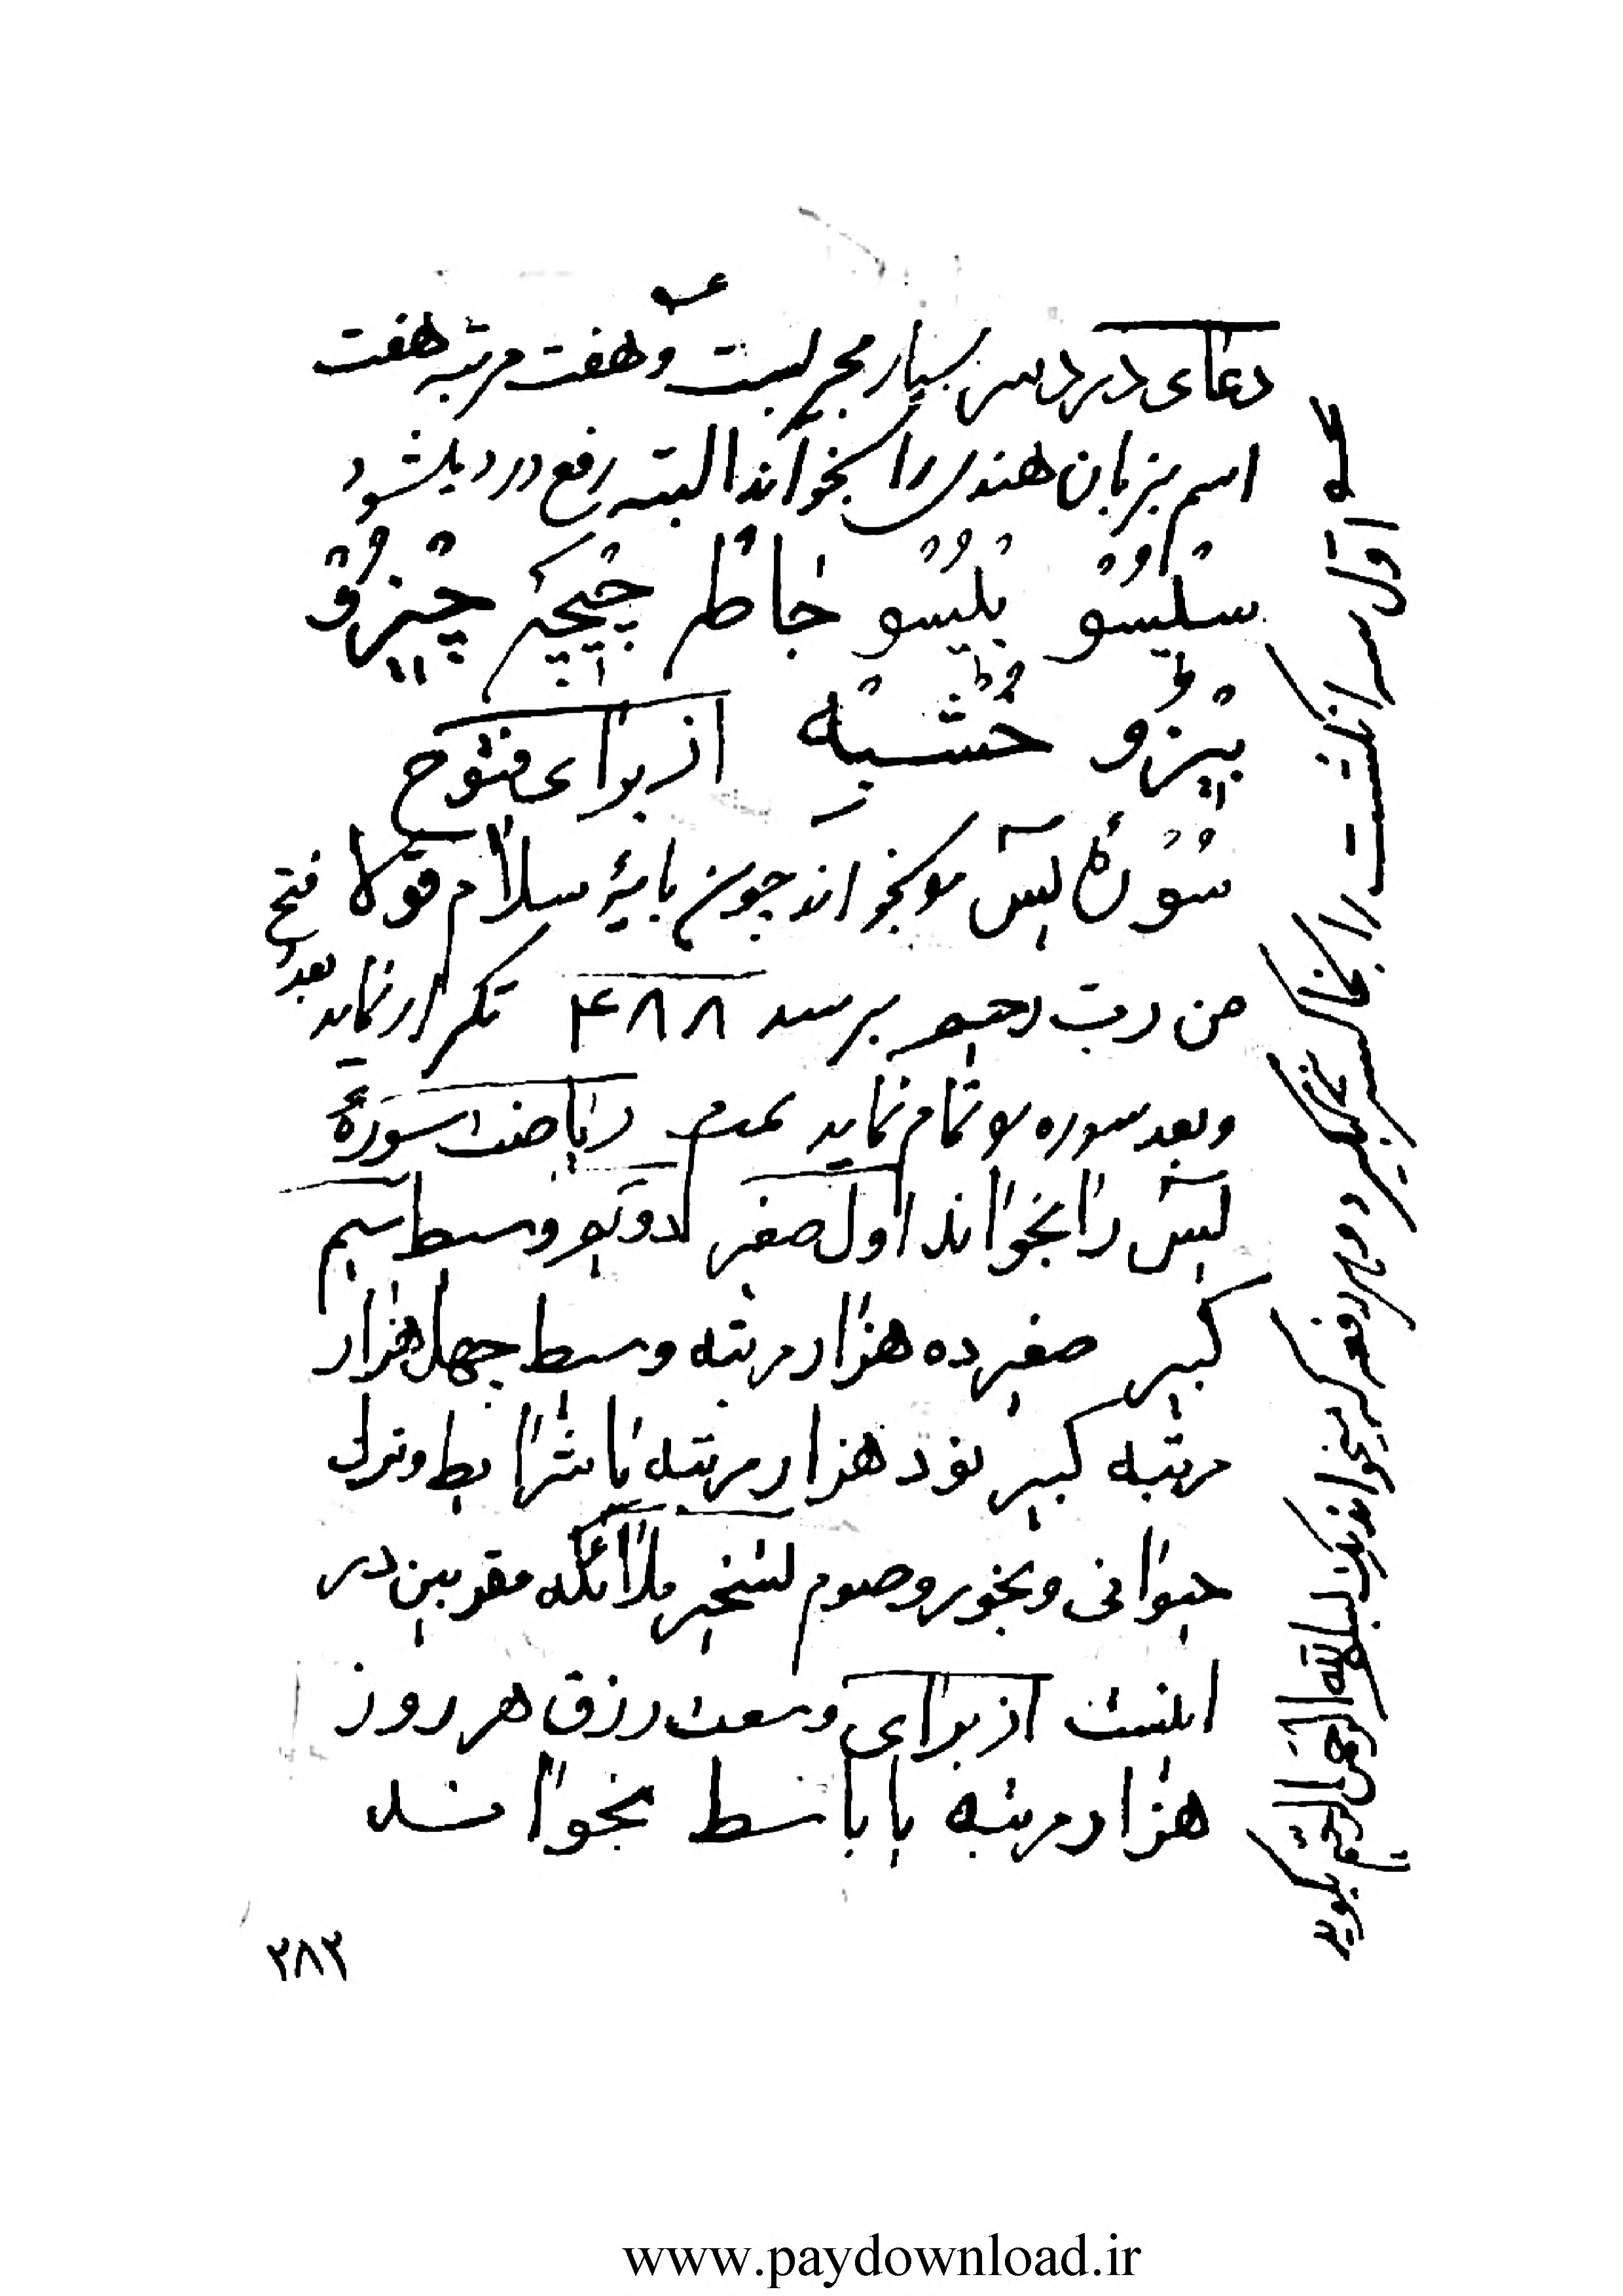 دعای درد سر بسیار مجرب است و هفت مرتبه هفت
اسم بزبان هندی را بخواند البته رفع درد میشود
سلیسو بلیسو خاطر چیچکه چیزو
بیزو خشبه از برای فتوح
سوره یس بخواند چون بآیه سلام قولا فتح
من رب رحیم برسد ۴۸۸ تکرار نماید بعد
و بعد سوره تمام نماید ریاضت سوره
یس را بخواند اول صغیر دویم وسیط سیم
کبیر صغیر ده هزار مرتبه وسیط چهل هزار
مرتبه کبیر نود هزار مرتبه با شرایط و ترک
حیوانی و بخور و صوم تسخیر ملائکه مقربین در
اینست از برای وسعت رزق هر روز
هزار مرتبه یا باسط بخواند
اول سر انگشت را بخاک دفعه که میخواند یک بسم الله الرحمن الرحیم بگوید
۲۸۲
www.paydownload.ir